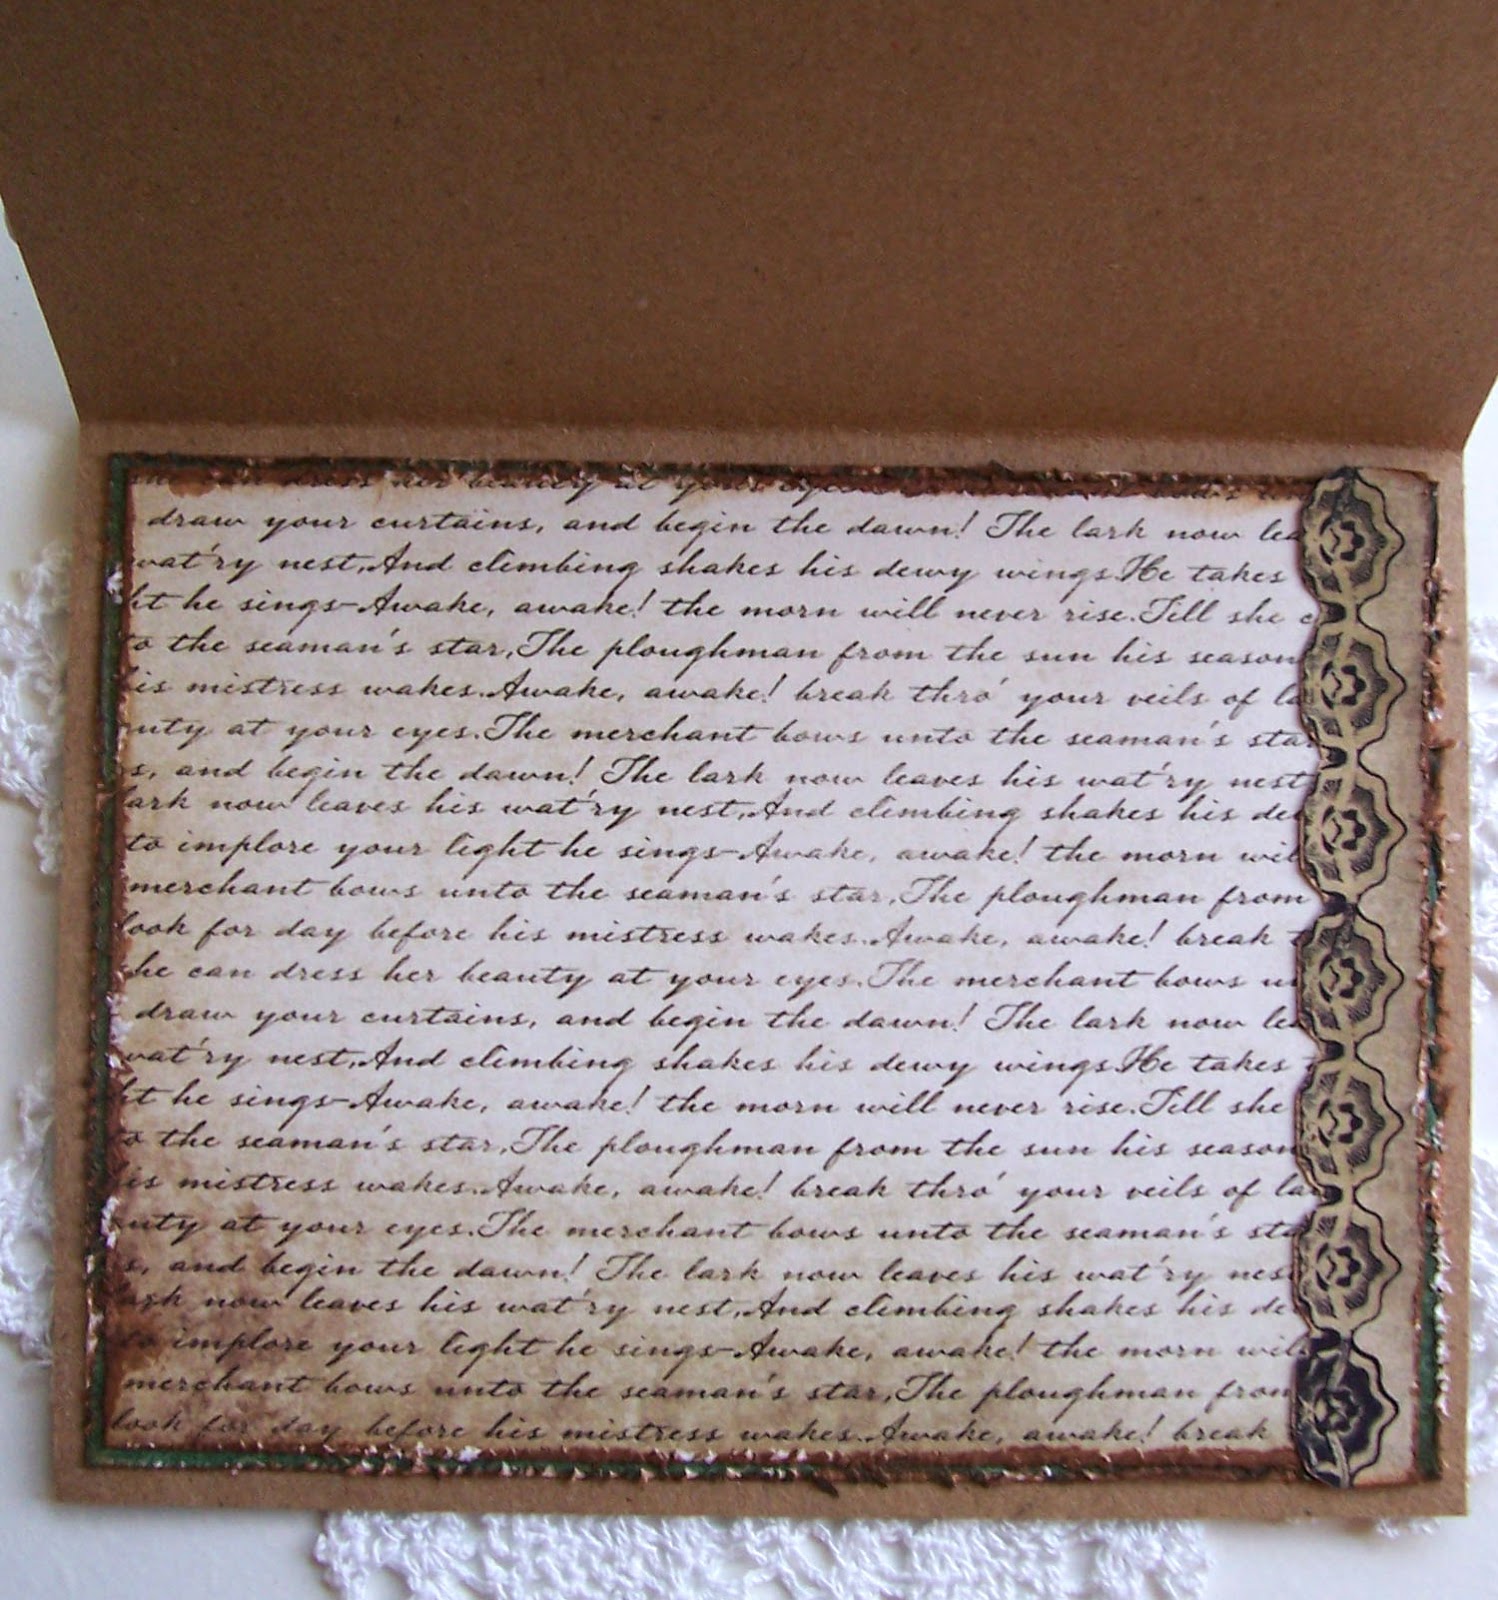 she can dress her beauty at your eyes
draw your curtains, and begin the dawn! The lark now lea
wat'ry nest,And climbing shakes his dewy wings.He takes
ht he sings-Awake, awake! the morn will never rise.Till she c
to the seaman's star,The ploughman from the sun his season
is mistress wakes.Awake, awake! break thro' your veils of la
uty at your eyes.The merchant bows unto the seaman's star
s, and begin the dawn! The lark now leaves his wat'ry nest
lark now leaves his wat'ry nest,And climbing shakes his de
to implore your light he sings-Awake, awake! the morn wil
merchant bows unto the seaman's star,The ploughman from
look for day before his mistress wakes.Awake, awake! break
she can dress her beauty at your eyes.The merchant bows un
draw your curtains, and begin the dawn! The lark now lea
wat'ry nest,And climbing shakes his dewy wings.He takes
ht he sings-Awake, awake! the morn will never rise.Till she
to the seaman's star,The ploughman from the sun his season
is mistress wakes.Awake, awake! break thro' your veils of la
uty at your eyes.The merchant bows unto the seaman's sta
s, and begin the dawn! The lark now leaves his wat'ry nes
lark now leaves his wat'ry nest,And climbing shakes his de
to implore your light he sings-Awake, awake! the morn will
merchant bows unto the seaman's star,The ploughman from
look for day before his mistress wakes.Awake, awake! break